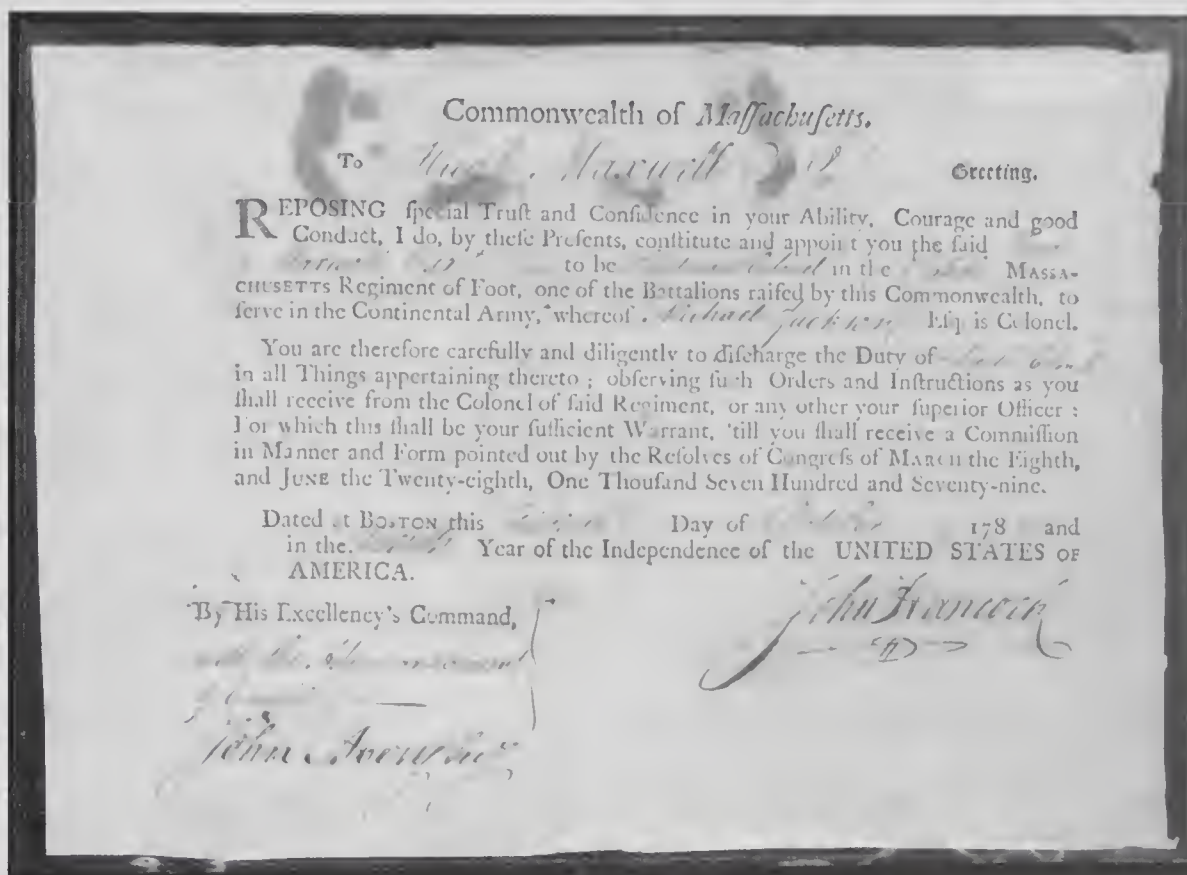 Commonwealth of Maſſachuſetts.
To Hugh Maxwell Greeting.
REPOSING ſpecial Truſt and Confidence in your Ability, Courage and good
Conduct, I do, by theſe Preſents, conſtitute and appoint you the ſaid
to be in the MASSA-
CHUSETTS Regiment of Foot, one of the Battalions raiſed by this Commonwealth, to
ſerve in the Continental Army, whereof Michael Jackson Eſq is Colonel.
You are therefore carefully and diligently to diſcharge the Duty of
in all Things appertaining thereto ; obſerving ſuch Orders and Inſtructions as you
ſhall receive from the Colonel of ſaid Regiment, or any other your ſuperior Officer :
For which this ſhall be your ſufficient Warrant, 'till you ſhall receive a Commiſſion
in Manner and Form pointed out by the Reſolves of Congreſs of MARCH the Eighth,
and JUNE the Twenty-eighth, One Thouſand Seven Hundred and Seventy-nine.
Dated at BOSTON this Day of 178 and
in the Year of the Independence of the UNITED STATES OF
AMERICA.
By His Excellency's Command,
John Hancock
John Avery